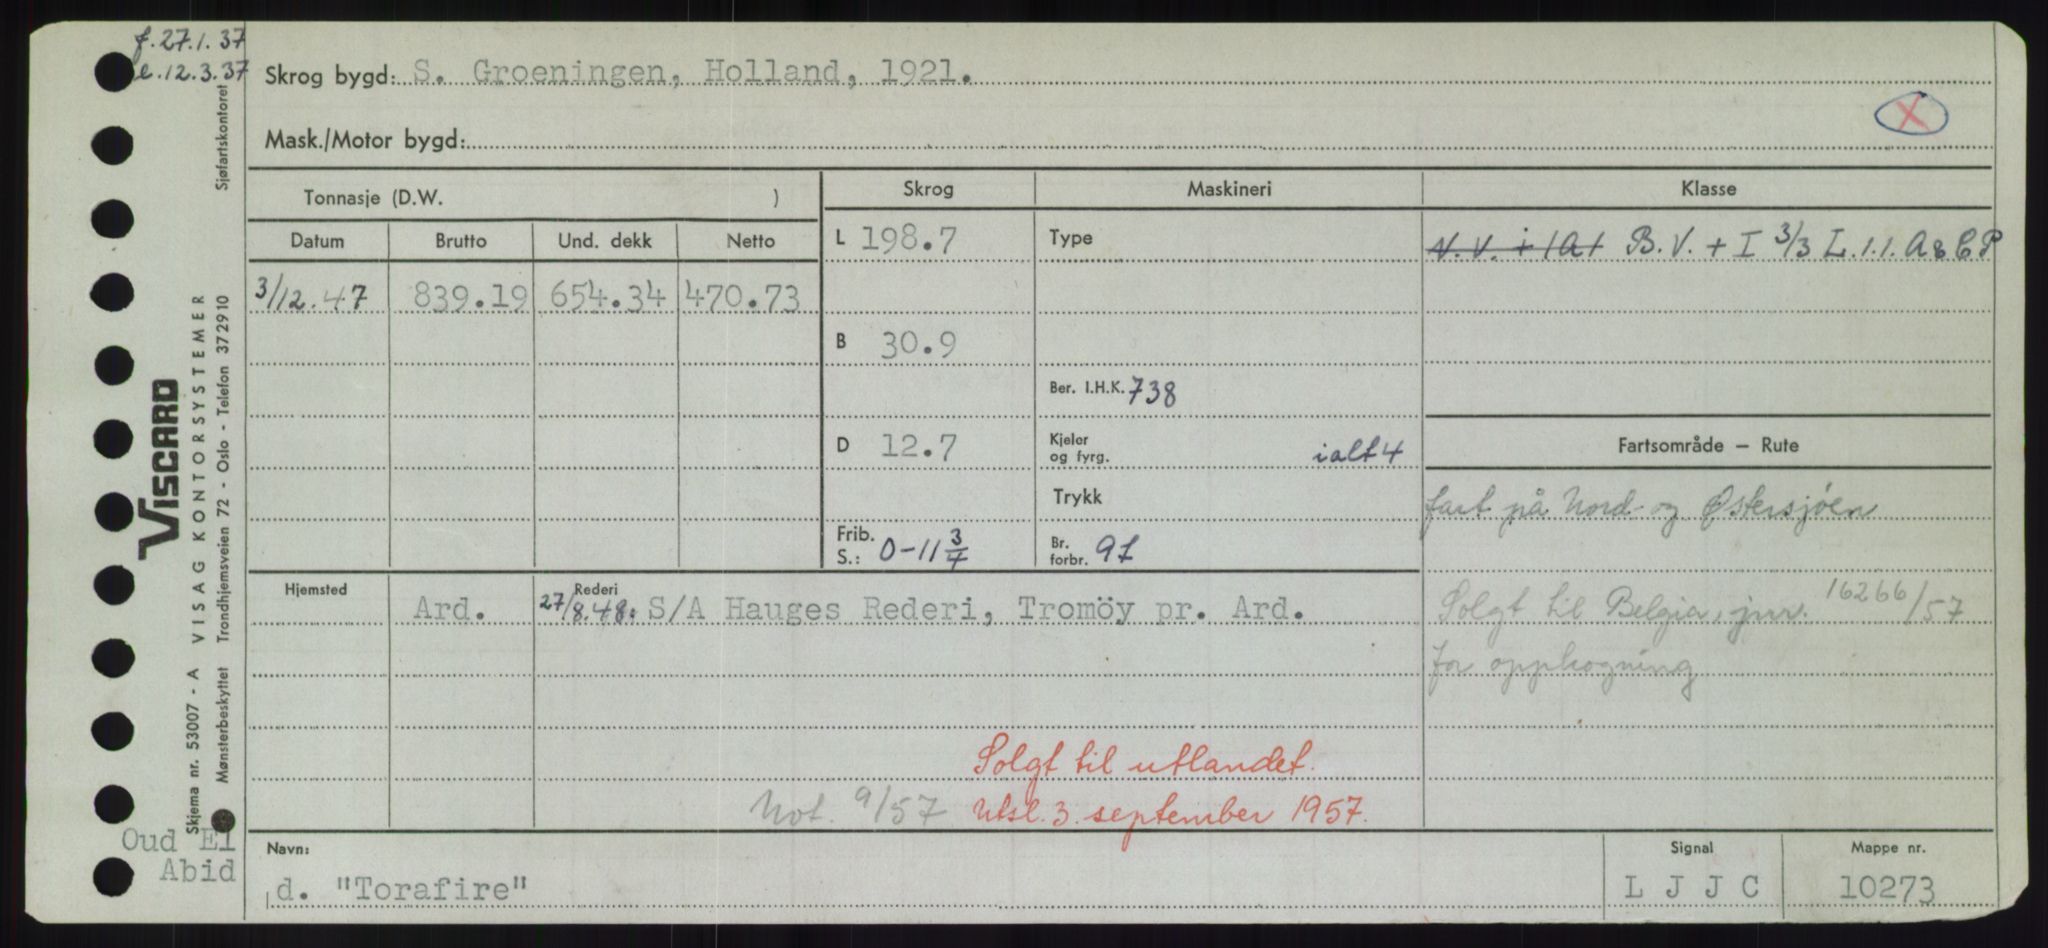 f. 27.1.37
e. 12.3.37
Skrog bygd: S. Groeningen, Holland, 1921.
X
Mask./Motor bygd:
Tonnasje (D.W. )
Skrog Maskineri Klasse
Datum Brutto Und. dekk Netto
L 198.7 Type N.V. + 1A1 B.V. + I 3/3 L.1.1. A & C P
3/12.47 839.19 654.34 470.73
B 30.9
Ber. I.H.K. 738
D 12.7 Kjeler og fyrg. ialt 4
Fartsområde — Rute
Trykk
fart på Nord- og Østersjøen
Frib. S.: 0-11 3/4 Br. forbr. 9t
Hjemsted Rederi
Ard. 27/8.48: S/A Hauges Rederi, Tromöy pr. Ard.
Solgt til Belgia, jnr. 16266/57
for opphogning
Solgt til utlandet.
Not. 9/57 Utsl. 3. september 1957.
Navn: Signal Mappe nr.
d. "Torafire" L J J C 10273
Oud El
Abid
Sjøfartskontoret
VISCARD
VISAG KONTORSYSTEMER
Trondhjemsveien 72 - Oslo - Telefon 372910
Skjema nr. 53007 - A
Mønsterbeskyttet